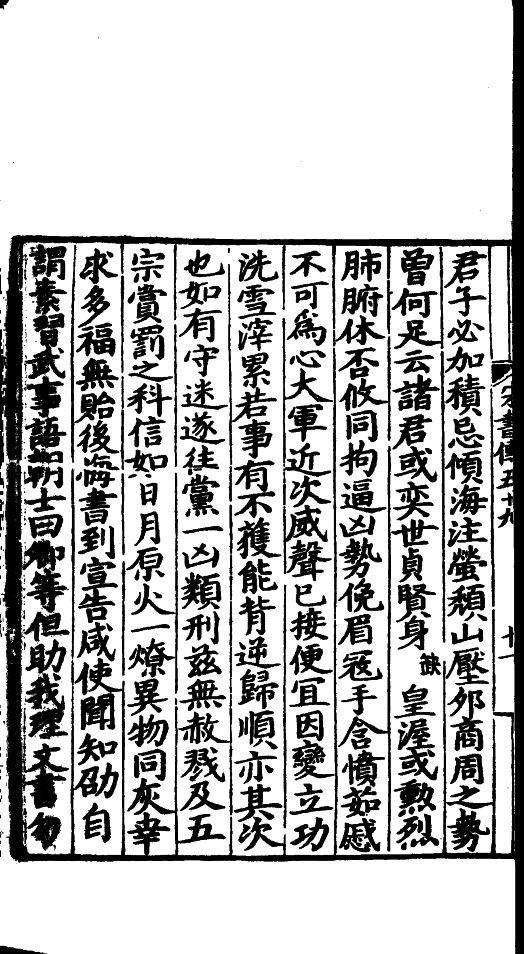 宋書傳五十九
廿一
君子必加積忌傾海注螢頹山壓卵商周之勢
曾何足云諸君或奕世貞賢身缺皇渥或勲烈
肺腑休否攸同拘逼凶勢俛眉冦手含憤茹慼
不可爲心大軍近次威聲已接便宜因變立功
洗雪滓累若事有不獲能背逆歸順亦其次
也如有守迷遂往黨一凶類刑兹無赦戮及五
宗賞罰之科信如日月原火一燎異物同灰幸
求多福無貽後悔書到宣告咸使聞知劭自
謂素習武事語朝士曰卿等但助我理文書勿